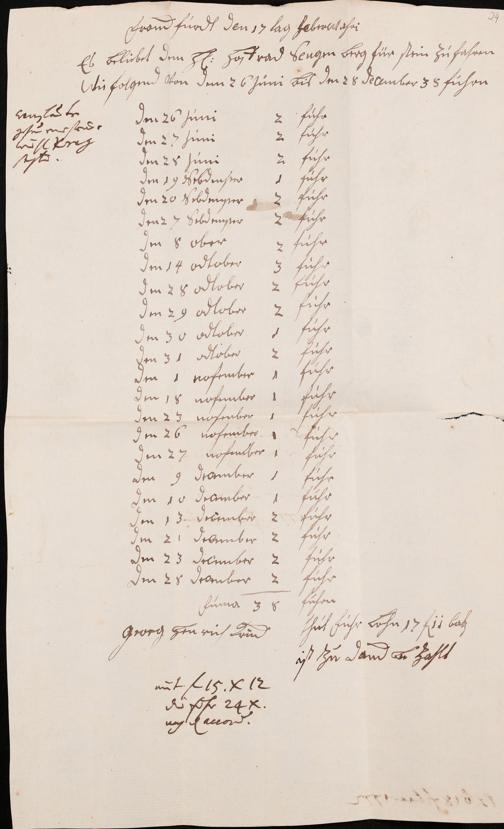 den 17
Es beliebet dem H: Hoffrad Sengen berg für stein zu fahren
Wie folgend Von den 26 Juni bis den 28 december 38 fuhren
den 26 Juni 2 fuhr
den 27 Juni 2 fuhr
den 28 Juni 2 fuhr
den 19 Sebdember 1 fuhr
den 20 Sebdember 2 fuhr
den 27 Sebdember 2 fuhr
den 8 ober 2 fuhr
den 14 odtober 3 fuhr
den 28 odtober 2 fuhr
den 29 odtober 2 fuhr
den 30 odtober 1 fuhr
den 31 odtober 2 fuhr
den 1 nofember 1 fuhr
den 18 nofember 1 fuhr
den 23 nofember 1 fuhr
den 26 nofember 1 fuhr
den 27 nofember 1 fuhr
den 9 december 1 fuhr
den 10 december 1 fuhr
den 13 december 2 fuhr
den 21 december 2 fuhr
den 23 december 2 fuhr
den 28 december 2 fuhr
Suma 38 fuhren
georg henrich thut fuhr lohn 17 f 11 batz
ist zu danck be zahlt
mit f 15. x 12
die fuhr 24 x.
nach accord.
24